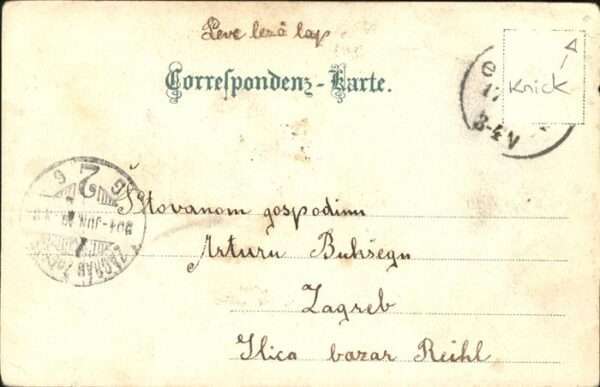 Leve lező lap
Correspondenz-Karte.
Knick
17
3-4N
2
904-JUN
ZÁGRÁB
Štovanom gospodinu
Arturu Buhšegu
Zagreb
Ilica bazar Reihl